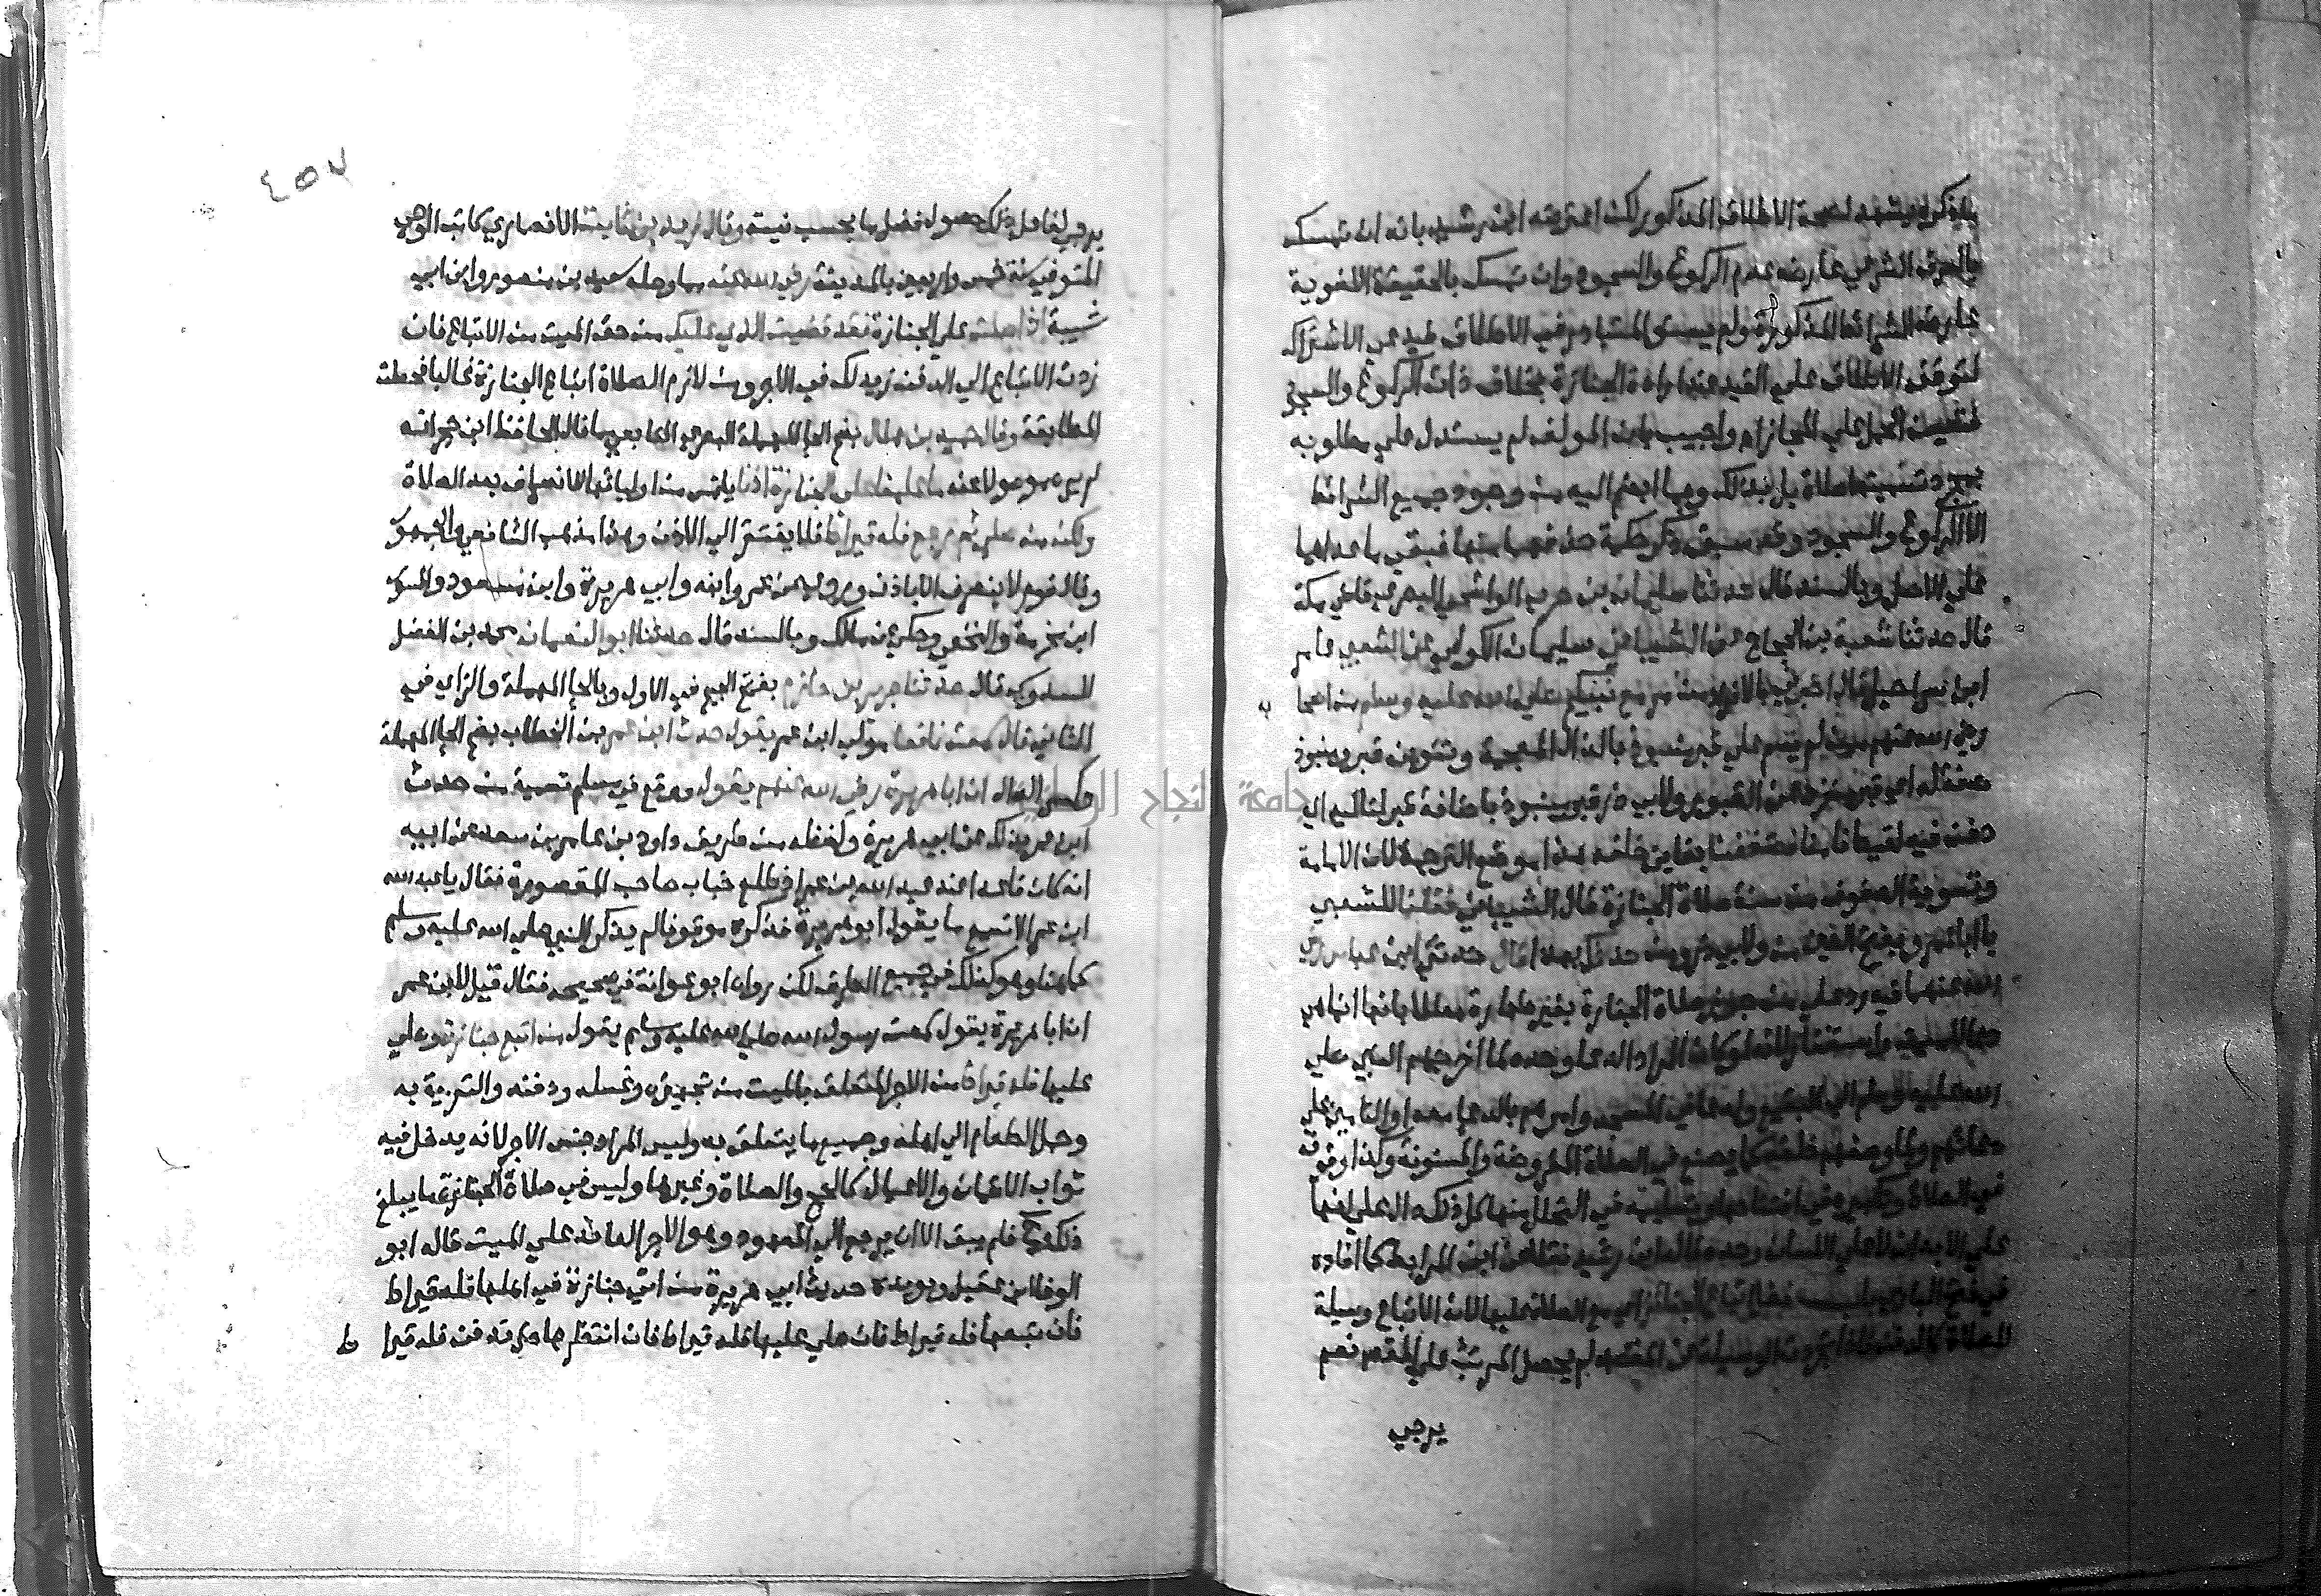 بما ذكره يشهد لصحة الاطلاق المذكور لكن اعترضه ابن رشيد بانه ان تمسك
بالعرف الشرعي عارضه عدم الركوع والسجود وان تمسك بالحقيقة اللغوية
عارضه الشرائط المذكورة ولم يستو المتبادر في الاطلاق فيدعي الاشتراك
لتوقف الاطلاق علي القيد عند ارادة الجنازة بخلاف ذات الركوع والسجود
فتعين الحمل علي المجاز اه واجيب بان المولف لم يستدل علي مطلوبه
بمجرد تسميتها صلاة بل بذلك وبما انضم اليه من وجود جميع الشرائط
الا الركوع والسجود وقد سبق ذكر حكمة حذفهما منها فبقي ما عداهما
علي الاصل وبالسند قال حدثنا سليمان بن حرب الواشحي البصري قاضي مكة
قال حدثنا شعبة بن الحجاج عن الشيباني سليمان الكوفي عن الشعبي عامر
ابن شراحيل قال اخبرني بالافراد من مر مع نبيكم صلي الله عليه وسلم من اصحابه
رضي الله عنهم ممن لم يسم علي قبر منبوذ بالذال المعجمة وتنوين قبر ومنبوذ
صفة له اي قبر منفرد عن القبور ولابي ذر قبر منبوذ باضافة قبر لتاليه اي
دفن فيه لقيط فامنا فصففنا بفاين خلفه هذا موضع الترجمة لان الامامة
وتسوية الصفوف من سنة صلاة الجنازة قال الشيباني فقلنا للشعبي
يا ابا عمرو بفتح العين من ولابي ذر ومن حدثك بهذا قال حدثني ابن عباس رضي
الله عنهما فيه رد علي من جوز صلاة الجنازة بغير طهارة معللا بانها انما هي
دعا للميت واستغفار لانه لو كان المراد الدعا وحده لما اخرجهم النبي صلي
الله عليه وسلم الي البقيع ولدعا في المسجد وامرهم بالدعا معه او التامين علي
دعائه ولما صفهم خلفه كما يصنع في الصلاة المفروضة والمسنونة وكذا وقوفه
في الصلاة وتكبيره في افتتاحها وتسليمه في التحلل منها كل ذلك دال علي انها
علي الابدان لا علي اللسان وحده قاله ابن رشيد نقلا عن ابن المرابط كما افاده
في فتح الباري باب فضل اتباع الجنائز اي مع الصلاة عليها لان الاتباع وسيلة
للصلاة كالدفن فاذا تجردت الوسيلة عن المقصد لم يحصل المرتب علي المقصد نعم
يرجي
٤٥٧
يرجي لفاعل ذلك حصول فضل ما بحسب نيته وقال زيد بن ثابت الانصاري كاتب الوحي
المتوفي سنة خمس واربعين بالمدينة رضي الله عنه مما وصله سعيد بن منصور وابن ابي
شيبة اذا صليت علي الجنازة فقد قضيت الذي عليك من حق الميت من الاتباع فان
زدت الاتباع الي الدفن زيد لك في الاجر ومن لازم الصلاة اتباع الجنازة غالبا فحصلت
المطابقة وقال حميد بن هلال بضم الحا المهملة البصري التابعي مما قال الحافظ ابن حجر انه
لم يره موصولا عنه ما علمنا علي الجنازة اذنا يلتمس من اوليائها للانصراف بعد الصلاة
ولكن من صلي ثم رجع فله قيراط فلا يفتقر الي الاذن وهذا مذهب الشافعي والجمهور
وقال قوم لا ينصرف الا باذن وروي عن عمر وابنه وابي هريرة وابن مسعود والمسور
ابن مخرمة والنخعي وحكي عن مالك وبالسند قال حدثنا ابو النعمان محمد بن الفضل
السدوسي قال حدثنا جرير بن حازم بفتح الجيم في الاول وبالحا المهملة والزاي في
الثاني قال سمعت نافعا مولي ابن عمر يقول حدث ابن عمر بن الخطاب بضم الحا المهملة
وكسر الدال ان ابا هريرة رضي الله عنهم يقول ووقع في مسلم تسمية من حدث
ابن عمر بذلك عن ابي هريرة ولفظه من طريق داود بن عامر بن سعد عن ابيه
انه كان قاعدا عند عبد الله بن عمر اذ طلع خباب صاحب المقصورة فقال يا عبد الله
ابن عمر الا تسمع ما يقول ابو هريرة فذكره موقوفا لم يذكر النبي صلي الله عليه وسلم
كما هنا وهو كذلك في جميع الطرق لكن رواه ابو عوانة في صحيحه فقال قيل لابن عمر
ان ابا هريرة يقول سمعت رسول الله صلي الله عليه وسلم يقول من اتبع جنازة وصلي
عليها فله قيراط من الاجر المتعلق بالميت من تجهيزه وغسله ودفنه والتعزية به
وحمل الطعام الي اهله وجميع ما يتعلق به وليس المراد جنس الاجر لانه يدخل فيه
ثواب الايمان والاعمال كالحج والصلاة وغيرها وليس في صلاة الجنازة ما يبلغ
ذلك فلم يبق الا ان يرجع الي المعهود وهو الاجر العائد علي الميت قاله ابو
الوفا بن عقيل ويويده حديث ابي هريرة من اتي جنازة في اهلها فله قيراط
فان تبعها فله قيراط فان صلي عليها فله قيراط فان انتظرها حتي تدفن فله قيرا ط
جامعة النجاح الوطنية